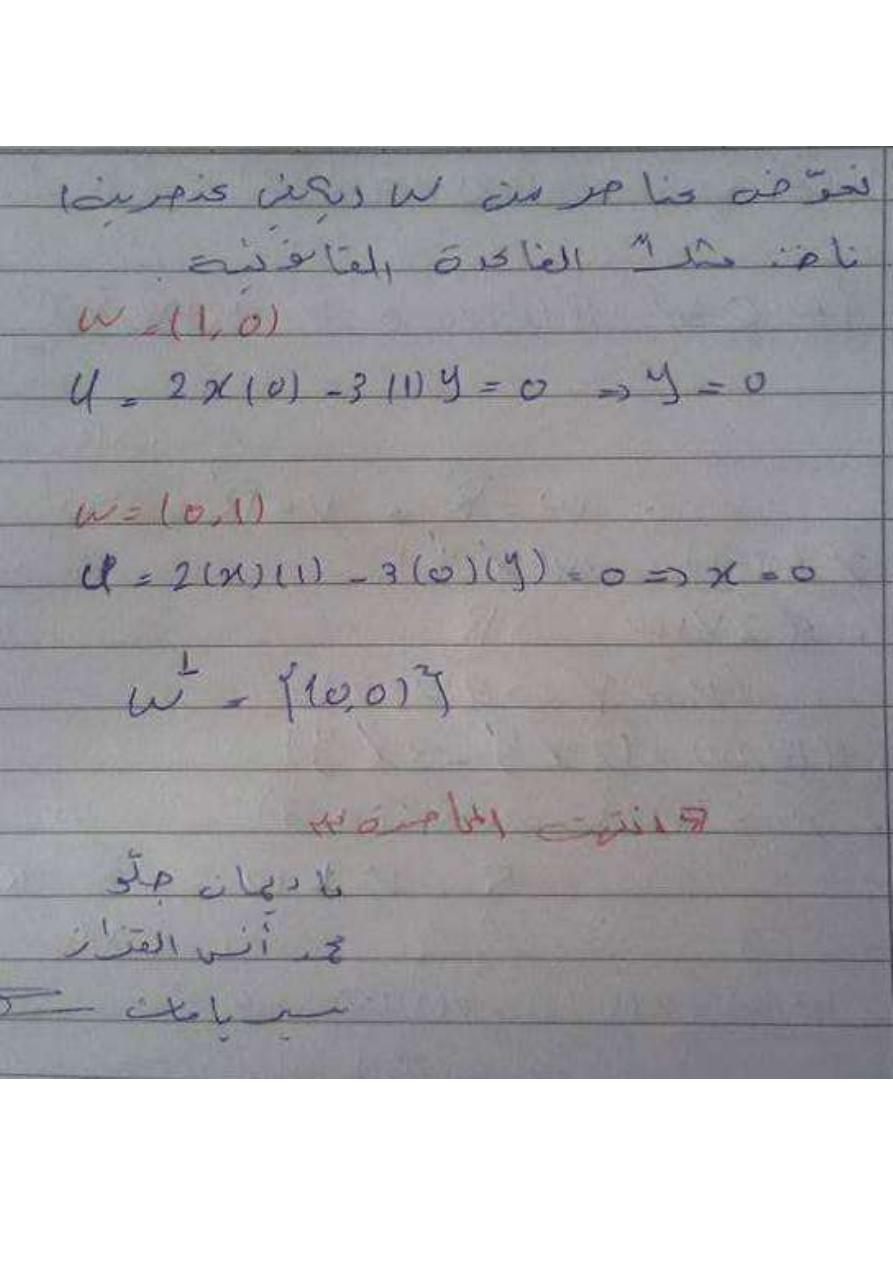 نعوّض عناصر من W ويكفي عنصرين!
ناخذ مثلاً القاعدة القانونية
W = (1, 0)
φ = 2x(0) - 3(1)y = 0 ⇒ y = 0
W = (0, 1)
φ = 2(x)(1) - 3(0)(y) = 0 ⇒ x = 0
W^⊥ = {(0,0)}
انتهت المحاضرة
ناديهان جلّو
محمد أنس القزاز